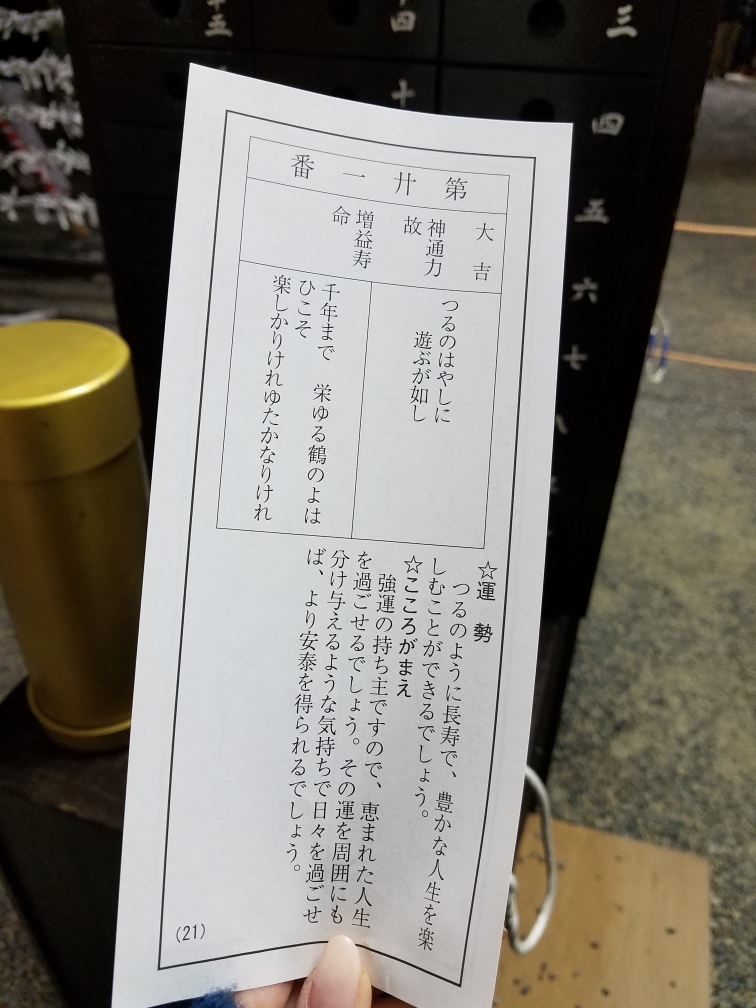 第廿一番
大吉
神通力
故
増益寿
命
つるのはやしに
遊ぶが如し
千年まで 栄ゆる鶴のよは
ひこそ
楽しかりけれゆたかなりけれ
☆運勢
つるのように長寿で、豊かな人生を楽
しむことができるでしょう。
☆こころがまえ
強運の持ち主ですので、恵まれた人生
を過ごせるでしょう。その運を周囲にも
分け与えるような気持ちで日々を過ごせ
ば、より安泰を得られるでしょう。
(21)
三
四
五
六
七
八
十